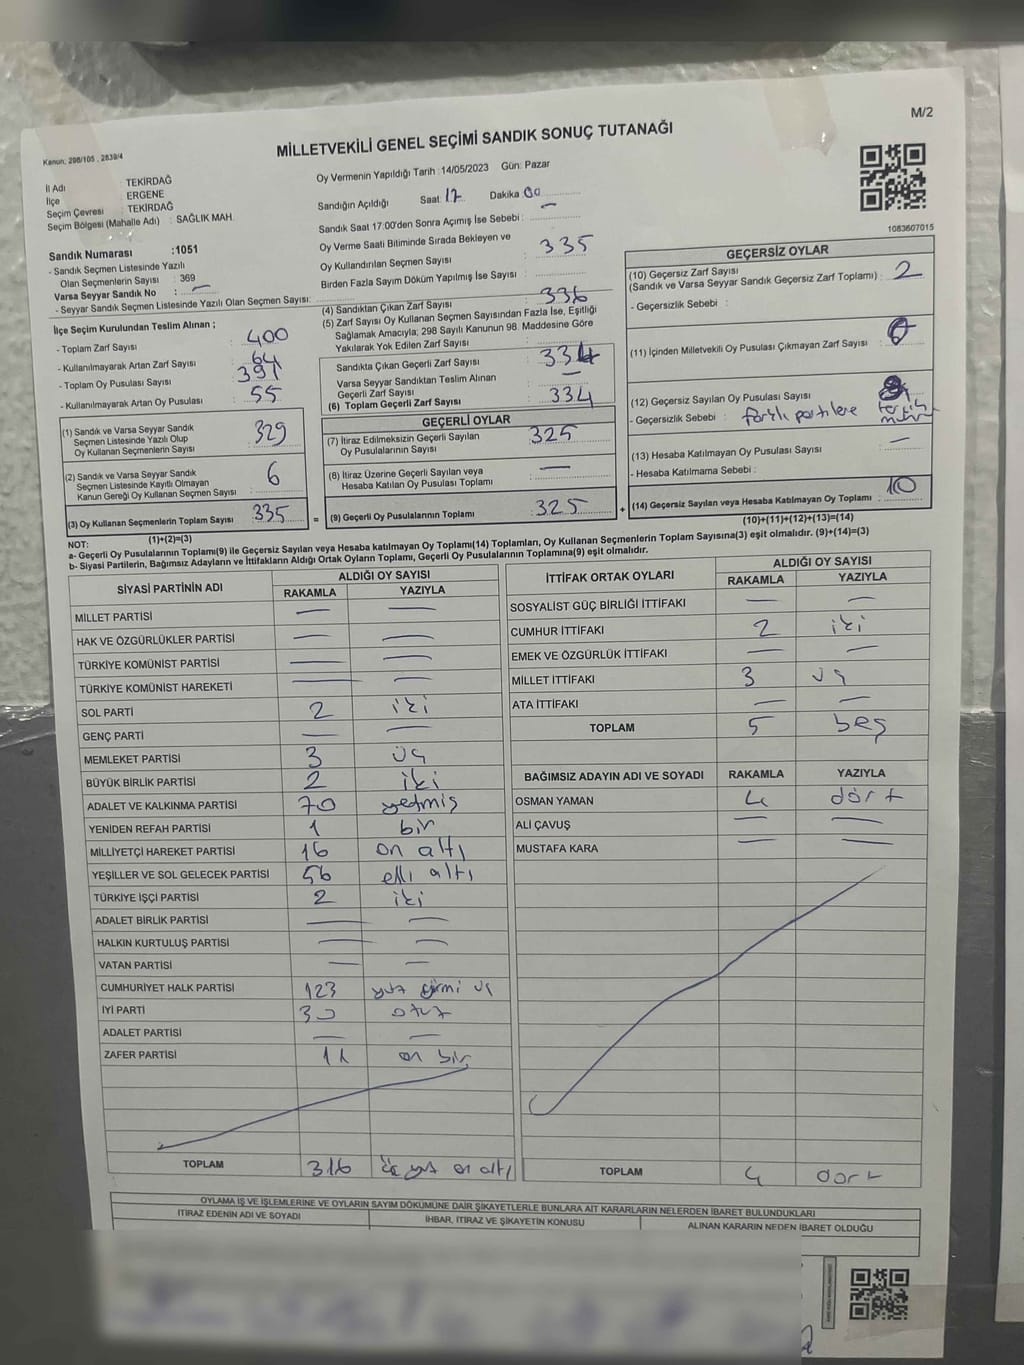 M/2
Kanun; 298/105 , 2839/4
MİLLETVEKİLİ GENEL SEÇİMİ SANDIK SONUÇ TUTANAĞI
İl Adı TEKİRDAĞ
İlçe ERGENE
Seçim Çevresi TEKİRDAĞ
Seçim Bölgesi (Mahalle Adı) : SAĞLIK MAH.
Oy Vermenin Yapıldığı Tarih :14/05/2023 Gün: Pazar
Sandığın Açıldığı Saat 17 Dakika 00
Sandık Saat 17:00'den Sonra Açımış İse Sebebi : —
Oy Verme Saati Bitiminde Sırada Bekleyen ve
Oy Kullandırılan Seçmen Sayısı 335
Birden Fazla Sayım Döküm Yapılmış İse Sayısı :
1083607015
Sandık Numarası :1051
- Sandık Seçmen Listesinde Yazılı
Olan Seçmenlerin Sayısı : 369
Varsa Seyyar Sandık No : —
- Seyyar Sandık Seçmen Listesinde Yazılı Olan Seçmen Sayısı:
İlçe Seçim Kurulundan Teslim Alınan ;
- Toplam Zarf Sayısı : 400
- Kullanılmayarak Artan Zarf Sayısı : 64
- Toplam Oy Pusulası Sayısı : 391
- Kullanılmayarak Artan Oy Pusulası : 55
(1) Sandık ve Varsa Seyyar Sandık
Seçmen Listesinde Yazılı Olup
Oy Kullanan Seçmenlerin Sayısı : 329
(2) Sandık ve Varsa Seyyar Sandık
Seçmen Listesinde Kayıtlı Olmayan
Kanun Gereği Oy Kullanan Seçmen Sayısı : 6
(3) Oy Kullanan Seçmenlerin Toplam Sayısı : 335
(1)+(2)=(3)
(4) Sandıktan Çıkan Zarf Sayısı 336
(5) Zarf Sayısı Oy Kullanan Seçmen Sayısından Fazla İse, Eşitliği
Sağlamak Amacıyla; 298 Sayılı Kanunun 98. Maddesine Göre
Yakılarak Yok Edilen Zarf Sayısı :
Sandıkta Çıkan Geçerli Zarf Sayısı : 334
Varsa Seyyar Sandıktan Teslim Alınan
Geçerli Zarf Sayısı : —
(6) Toplam Geçerli Zarf Sayısı : 334
GEÇERLİ OYLAR
(7) İtiraz Edilmeksizin Geçerli Sayılan
Oy Pusulalarının Sayısı : 325
(8) İtiraz Üzerine Geçerli Sayılan veya
Hesaba Katılan Oy Pusulası Toplamı : —
= (9) Geçerli Oy Pusulalarının Toplamı : 325 +
GEÇERSİZ OYLAR
(10) Geçersiz Zarf Sayısı
(Sandık ve Varsa Seyyar Sandık Geçersiz Zarf Toplamı) : 2
- Geçersizlik Sebebi :
(11) İçinden Milletvekili Oy Pusulası Çıkmayan Zarf Sayısı :
(12) Geçersiz Sayılan Oy Pusulası Sayısı
- Geçersizlik Sebebi : farklı partilere
(13) Hesaba Katılmayan Oy Pusulası Sayısı : —
- Hesaba Katılmama Sebebi :
(14) Geçersiz Sayılan veya Hesaba Katılmayan Oy Toplamı : 10
(10)+(11)+(12)+(13)=(14)
NOT:
a- Geçerli Oy Pusulalarının Toplamı(9) ile Geçersiz Sayılan veya Hesaba katılmayan Oy Toplamı(14) Toplamları, Oy Kullanan Seçmenlerin Toplam Sayısına(3) eşit olmalıdır. (9)+(14)=(3)
b- Siyasi Partilerin, Bağımsız Adayların ve İttifakların Aldığı Ortak Oyların Toplamı, Geçerli Oy Pusulalarının Toplamına(9) eşit olmalıdır.
SİYASİ PARTİNİN ADI ALDIĞI OY SAYISI
RAKAMLA YAZIYLA
MİLLET PARTİSİ — —
HAK VE ÖZGÜRLÜKLER PARTİSİ — —
TÜRKİYE KOMÜNİST PARTİSİ — —
TÜRKİYE KOMÜNİST HAREKETİ — —
SOL PARTİ 2 iki
GENÇ PARTİ — —
MEMLEKET PARTİSİ 3 üç
BÜYÜK BİRLİK PARTİSİ 2 iki
ADALET VE KALKINMA PARTİSİ 70 yetmiş
YENİDEN REFAH PARTİSİ 1 bir
MİLLİYETÇİ HAREKET PARTİSİ 16 on altı
YEŞİLLER VE SOL GELECEK PARTİSİ 56 elli altı
TÜRKİYE İŞÇİ PARTİSİ 2 iki
ADALET BİRLİK PARTİSİ — —
HALKIN KURTULUŞ PARTİSİ — —
VATAN PARTİSİ — —
CUMHURİYET HALK PARTİSİ 123 yüz yirmi üç
İYİ PARTİ 30 otuz
ADALET PARTİSİ — —
ZAFER PARTİSİ 11 on bir
TOPLAM 316 üç yüz on altı
İTTİFAK ORTAK OYLARI ALDIĞI OY SAYISI
RAKAMLA YAZIYLA
SOSYALİST GÜÇ BİRLİĞİ İTTİFAKI — —
CUMHUR İTTİFAKI 2 iki
EMEK VE ÖZGÜRLÜK İTTİFAKI — —
MİLLET İTTİFAKI 3 üç
ATA İTTİFAKI — —
TOPLAM 5 beş
BAĞIMSIZ ADAYIN ADI VE SOYADI RAKAMLA YAZIYLA
OSMAN YAMAN 4 dört
ALİ ÇAVUŞ — —
MUSTAFA KARA — —
TOPLAM 4 dört
OYLAMA İŞ VE İŞLEMLERİNE VE OYLARIN SAYIM DÖKÜMÜNE DAİR ŞİKAYETLERLE BUNLARA AİT KARARLARIN NELERDEN İBARET BULUNDUKLARI
İTİRAZ EDENİN ADI VE SOYADI İHBAR, İTİRAZ VE ŞİKAYETİN KONUSU ALINAN KARARIN NEDEN İBARET OLDUĞU